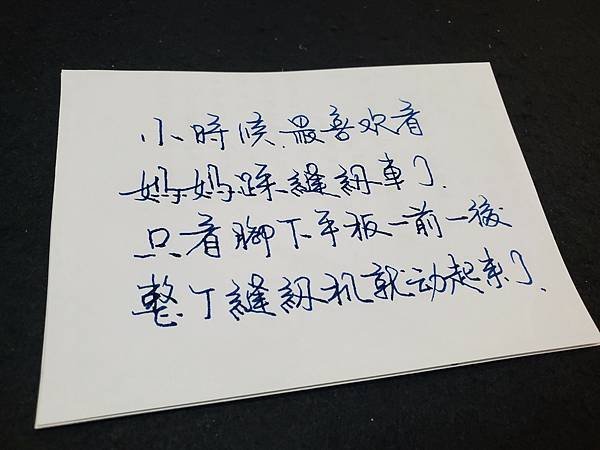 小時候.最喜欢看
妈妈踩縫紉車了.
只看腳下平板一前一後
整个縫紉机就动起来了.